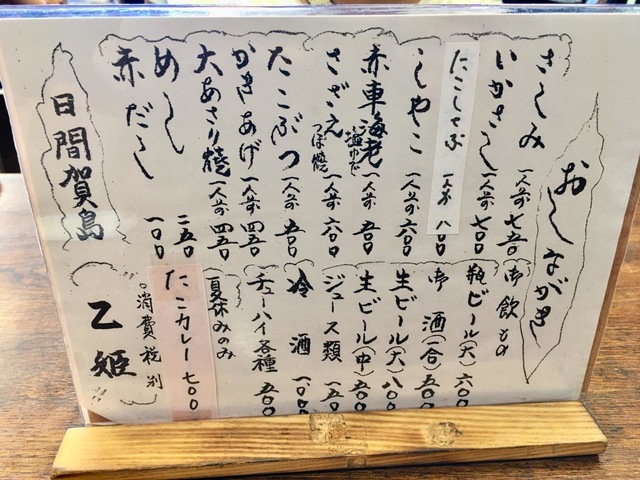 おしながき
さしみ 一人前 七五〇
いかさし 一人前 七〇〇
たこしゃぶ 一人前 八〇〇
しゃこ 一人前 六〇〇
赤車海老 塩ゆで 一人前 五〇〇
さざえ つぼ焼 一人前 六〇〇
たこぶつ 一人前 五〇〇
かきあげ 一人前 四五〇
大あさり焼 一人前 四五〇
めし 二五〇
赤だし 一〇〇
日間賀島
御飲もの
瓶ビール(大) 六〇〇
御酒(一合) 五〇〇
生ビール(大) 八〇〇
生ビール(中) 五〇〇
ジュース類 三〇〇
冷酒 一、〇〇〇
チューハイ各種 五〇〇
夏休みのみ
たこカレー 七〇〇
。消費税別
乙姫